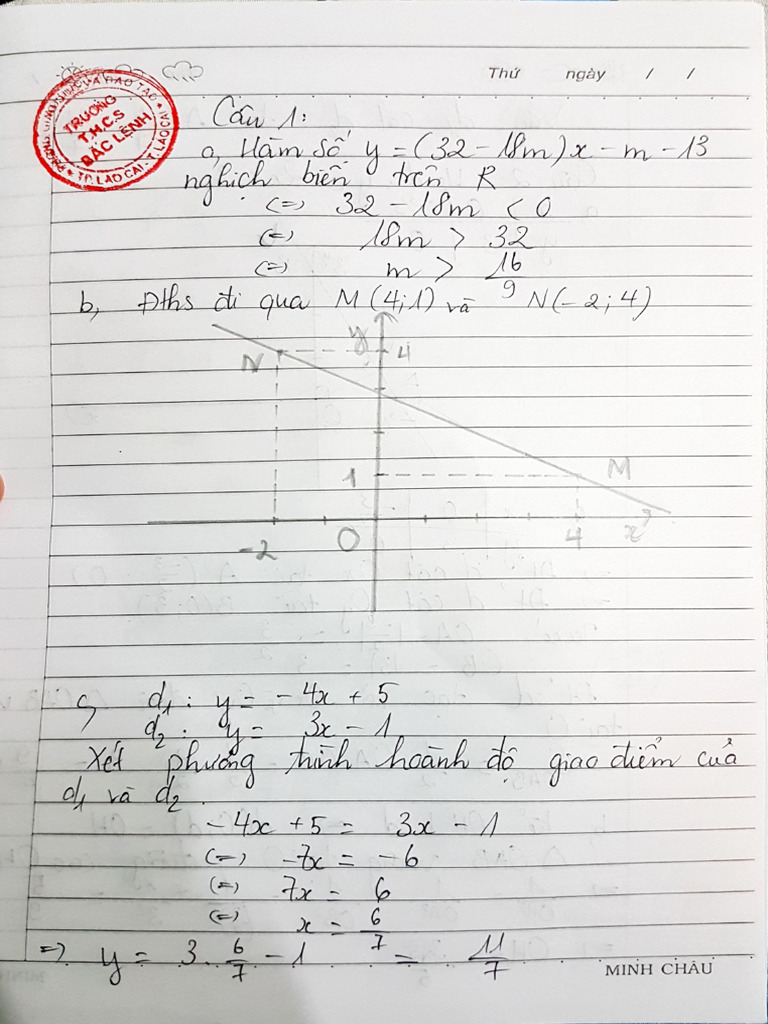 Thứ ngày / /
TRƯỜNG
T.H.C.S
BẮC LỆNH
TP. LÀO CAI - T. LÀO CAI
Câu 1:
a, Hàm số y = (32 - 18m)x - m - 13
nghịch biến trên R
(=) 32 - 18m < 0
(=) 18m > 32
(=) m > 16/9
b, Đths đi qua M(4;1) và N(-2;4)
y
N 4
1 M
-2 O 4 x
c, d1: y = -4x + 5
d2: y = 3x - 1
Xét phương trình hoành độ giao điểm của
d1 và d2.
-4x + 5 = 3x - 1
(=) -7x = -6
(=) 7x = 6
(=) x = 6/7
=> y = 3. 6/7 - 1 = 11/7
MINH CHÂU